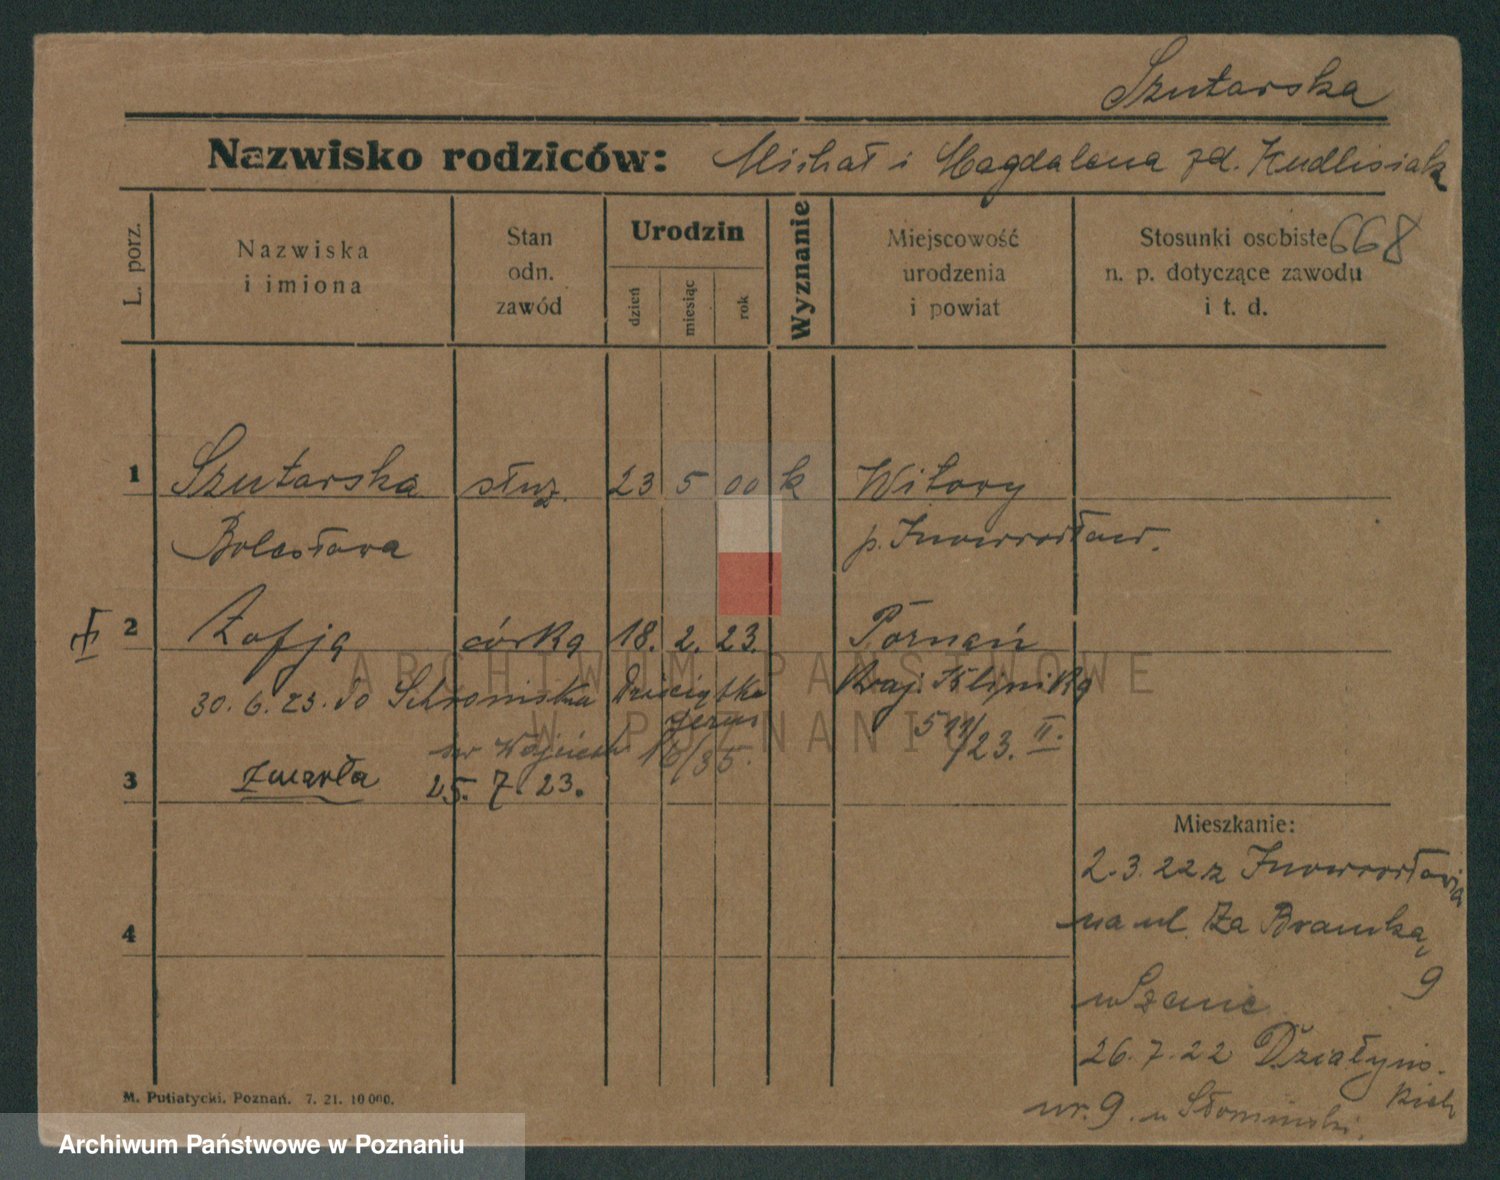 Szutarska
Nazwisko rodziców: Michał i Magdalena zd. Kudlisiak
L. porz.
Nazwiska
i imiona
Stan
odn.
zawód
Urodzin
dzień
miesiąc
rok
Wyznanie
Miejscowość
urodzenia
i powiat
Stosunki osobiste 668
n. p. dotyczące zawodu
i t. d.
1 Szutarska służ. 23 5 00 k Witowy
Bolesława p. Inowrocław.
2 Zofja córka 18. 2. 23. Poznań
30. 6. 23. do Schroniska Dzieciątka Kraj. Klinika
Jezus 511/23. II.
św Wojciech 16/35.
3 zmarła 25. 7. 23.
Mieszkanie:
2. 3. 22 z Inowrocławia
na ul. Za Bramką
9
u Szanie
4
26. 7. 22 Działyńs-
kich
nr. 9. u Słomiński.
M. Putiatycki, Poznań. 7. 21. 10 000.
ARCHIWUM PAŃSTWOWE
W POZNANIU
Archiwum Państwowe w Poznaniu